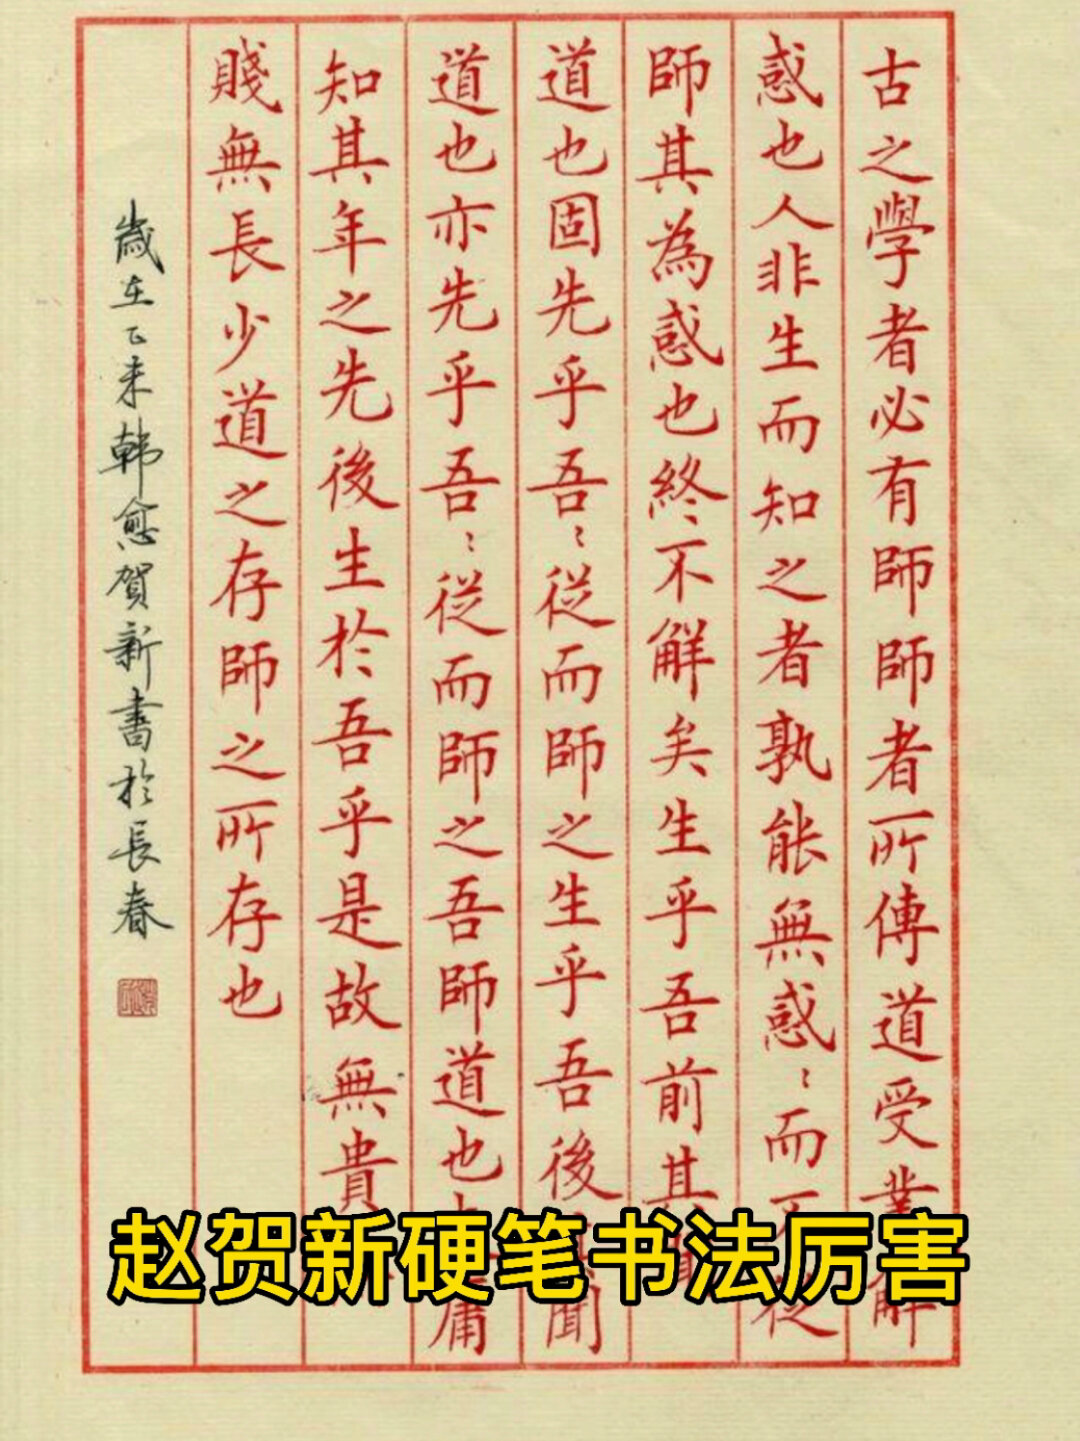 古之學者必有師師者所傳道受業解
惑也人非生而知之者孰能無惑〻而不從
師其為惑也終不解矣生乎吾前其
道也固先乎吾〻從而師之生乎吾後其聞
道也亦先乎吾〻從而師之吾師道也夫庸
知其年之先後生於吾乎是故無貴
賤無長少道之存師之所存也
歲在乙未韓愈賀新書於長春
赵贺新硬笔书法厉害